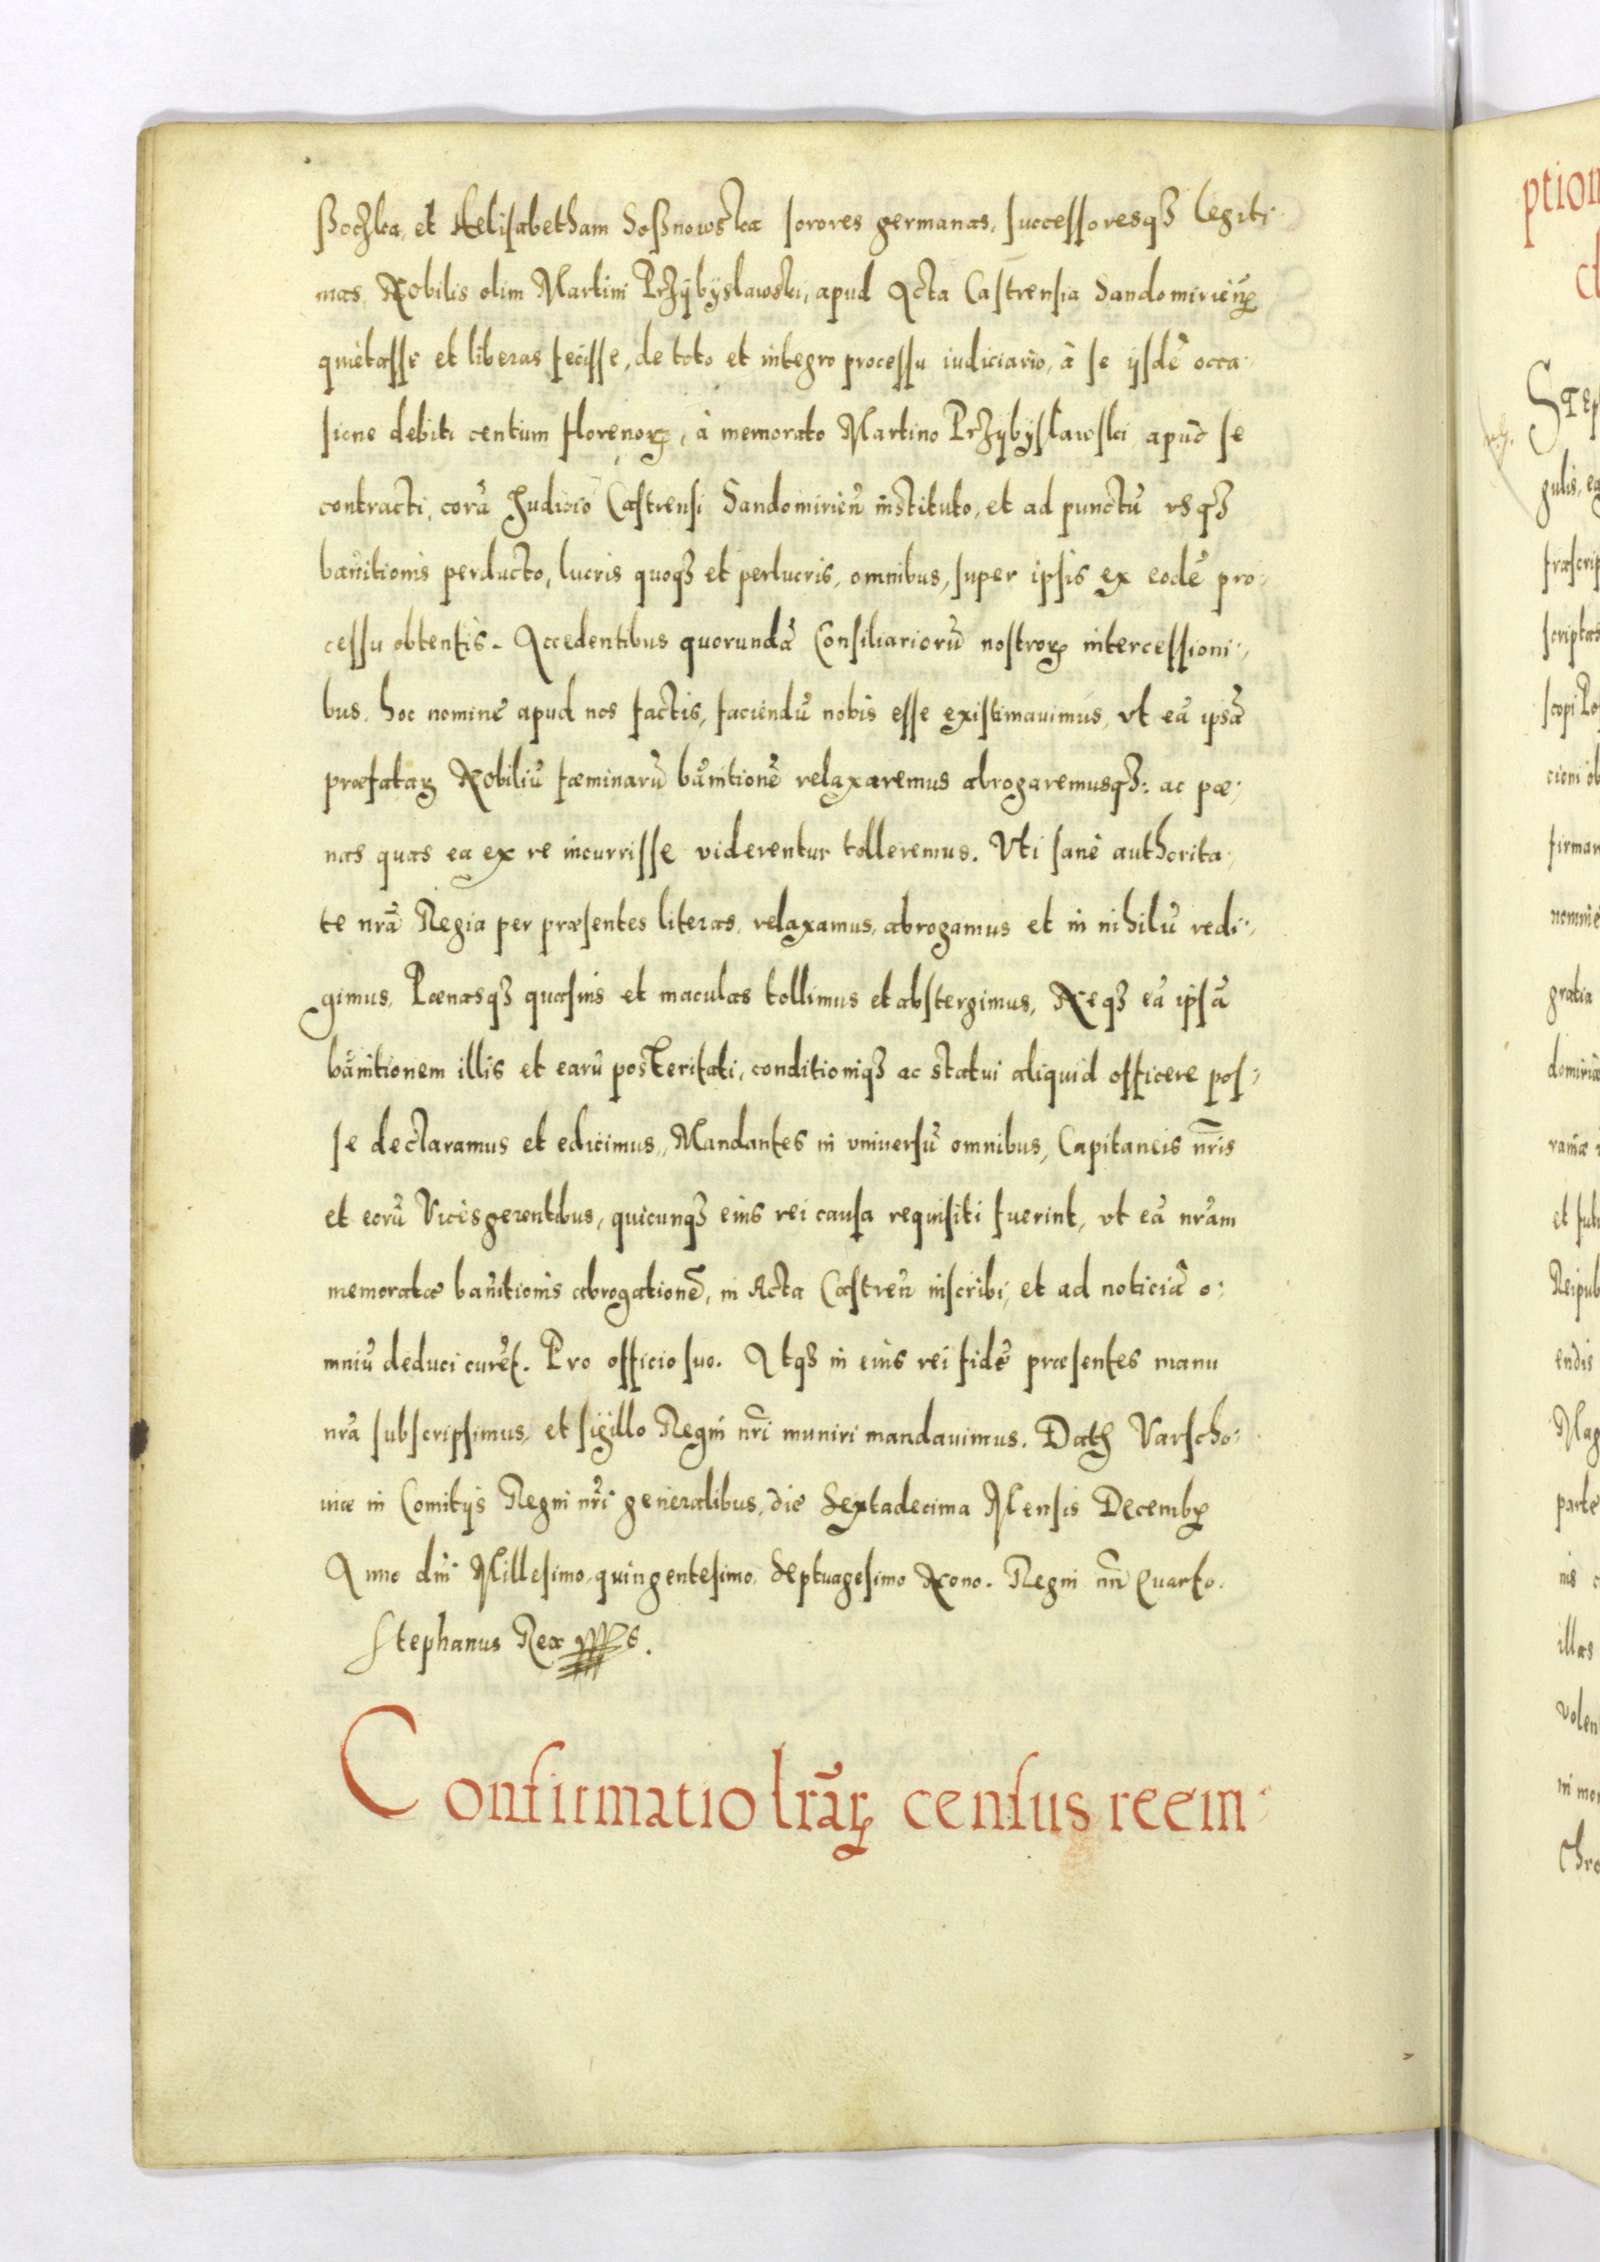 ßoczka, et Helisabetham Soßnowska sorores germanas, successoresqꝫ legiti
mas Nobilis olim Martini Przÿbÿslawski, apud Acta Castrensia Sandomirienꝭ
quietasse et liberas fecisse, de toto et integro processu iudiciario, à se ijsdē occa
sione debiti centum florenoꝝ, à memorato Martino Przÿbÿslawski apud se
contracti, corā Judicio Castrensi Sandomirieñ instituto, et ad punctū vsqꝫ
bañitionis perducto, lucris quoqꝫ et perlucris, omnibus, super ipsis ex eodē pro-
cessu obtentis. Accedentibus quorundā Consiliariorū nostroꝝ intercessioni-
bus, hoc nomine apud nos factis, faciendū nobis esse existimauimus, vt eā ipsā
præfataꝝ Nobiliū fæminarū bañitionē relaxaremus abrogaremusqꝫ: ac pæ-
nas quas ea ex re incurrisse viderentur tolleremus. Vti sanè authorita
te nrā Regia per præsentes literas, relaxamus, abrogamus et in nihilū redi-
gimus, Pænasqꝫ quasuis et maculas tollimus et abstergimus, Neqꝫ eā ipsā
bañitionem illis et earū posteritati, conditioniqꝫ ac statui aliquid officere pos-
se declaramus et edicimus, Mandantes in vniuersū omnibus, Capitaneis nr̄is
et eorū Vicesgerentibus, quicunqꝫ eius rei causa requisiti fuerint, vt eā nrām
memoratæ bañitionis abrogationē, in Acta Castreñ inscribi, et ad noticiā o-
mniū deduci curēt. Pro officio suo. Atqꝫ in eius rei fidē præsentes manu
nrā subscripsimus, et sigillo Regni nr̄i muniri mandauimus. Datꝭ Varscho-
uiæ in Comitijs Regni nr̄i generalibus, die Sextadecima Mensis Decembꝭ
Anno dn̄i Millesimo, quingentesimo, Septuagesimo Nono. Regni nr̄i Quarto.
Stephanus Rex sspt.
Confirmatio lrāꝝ census reem-
ption
STEp
gulis, ea
scriptas
firmam
gratia
et futu
Reipub
endis
Mag
parte
illas
volen
Chro